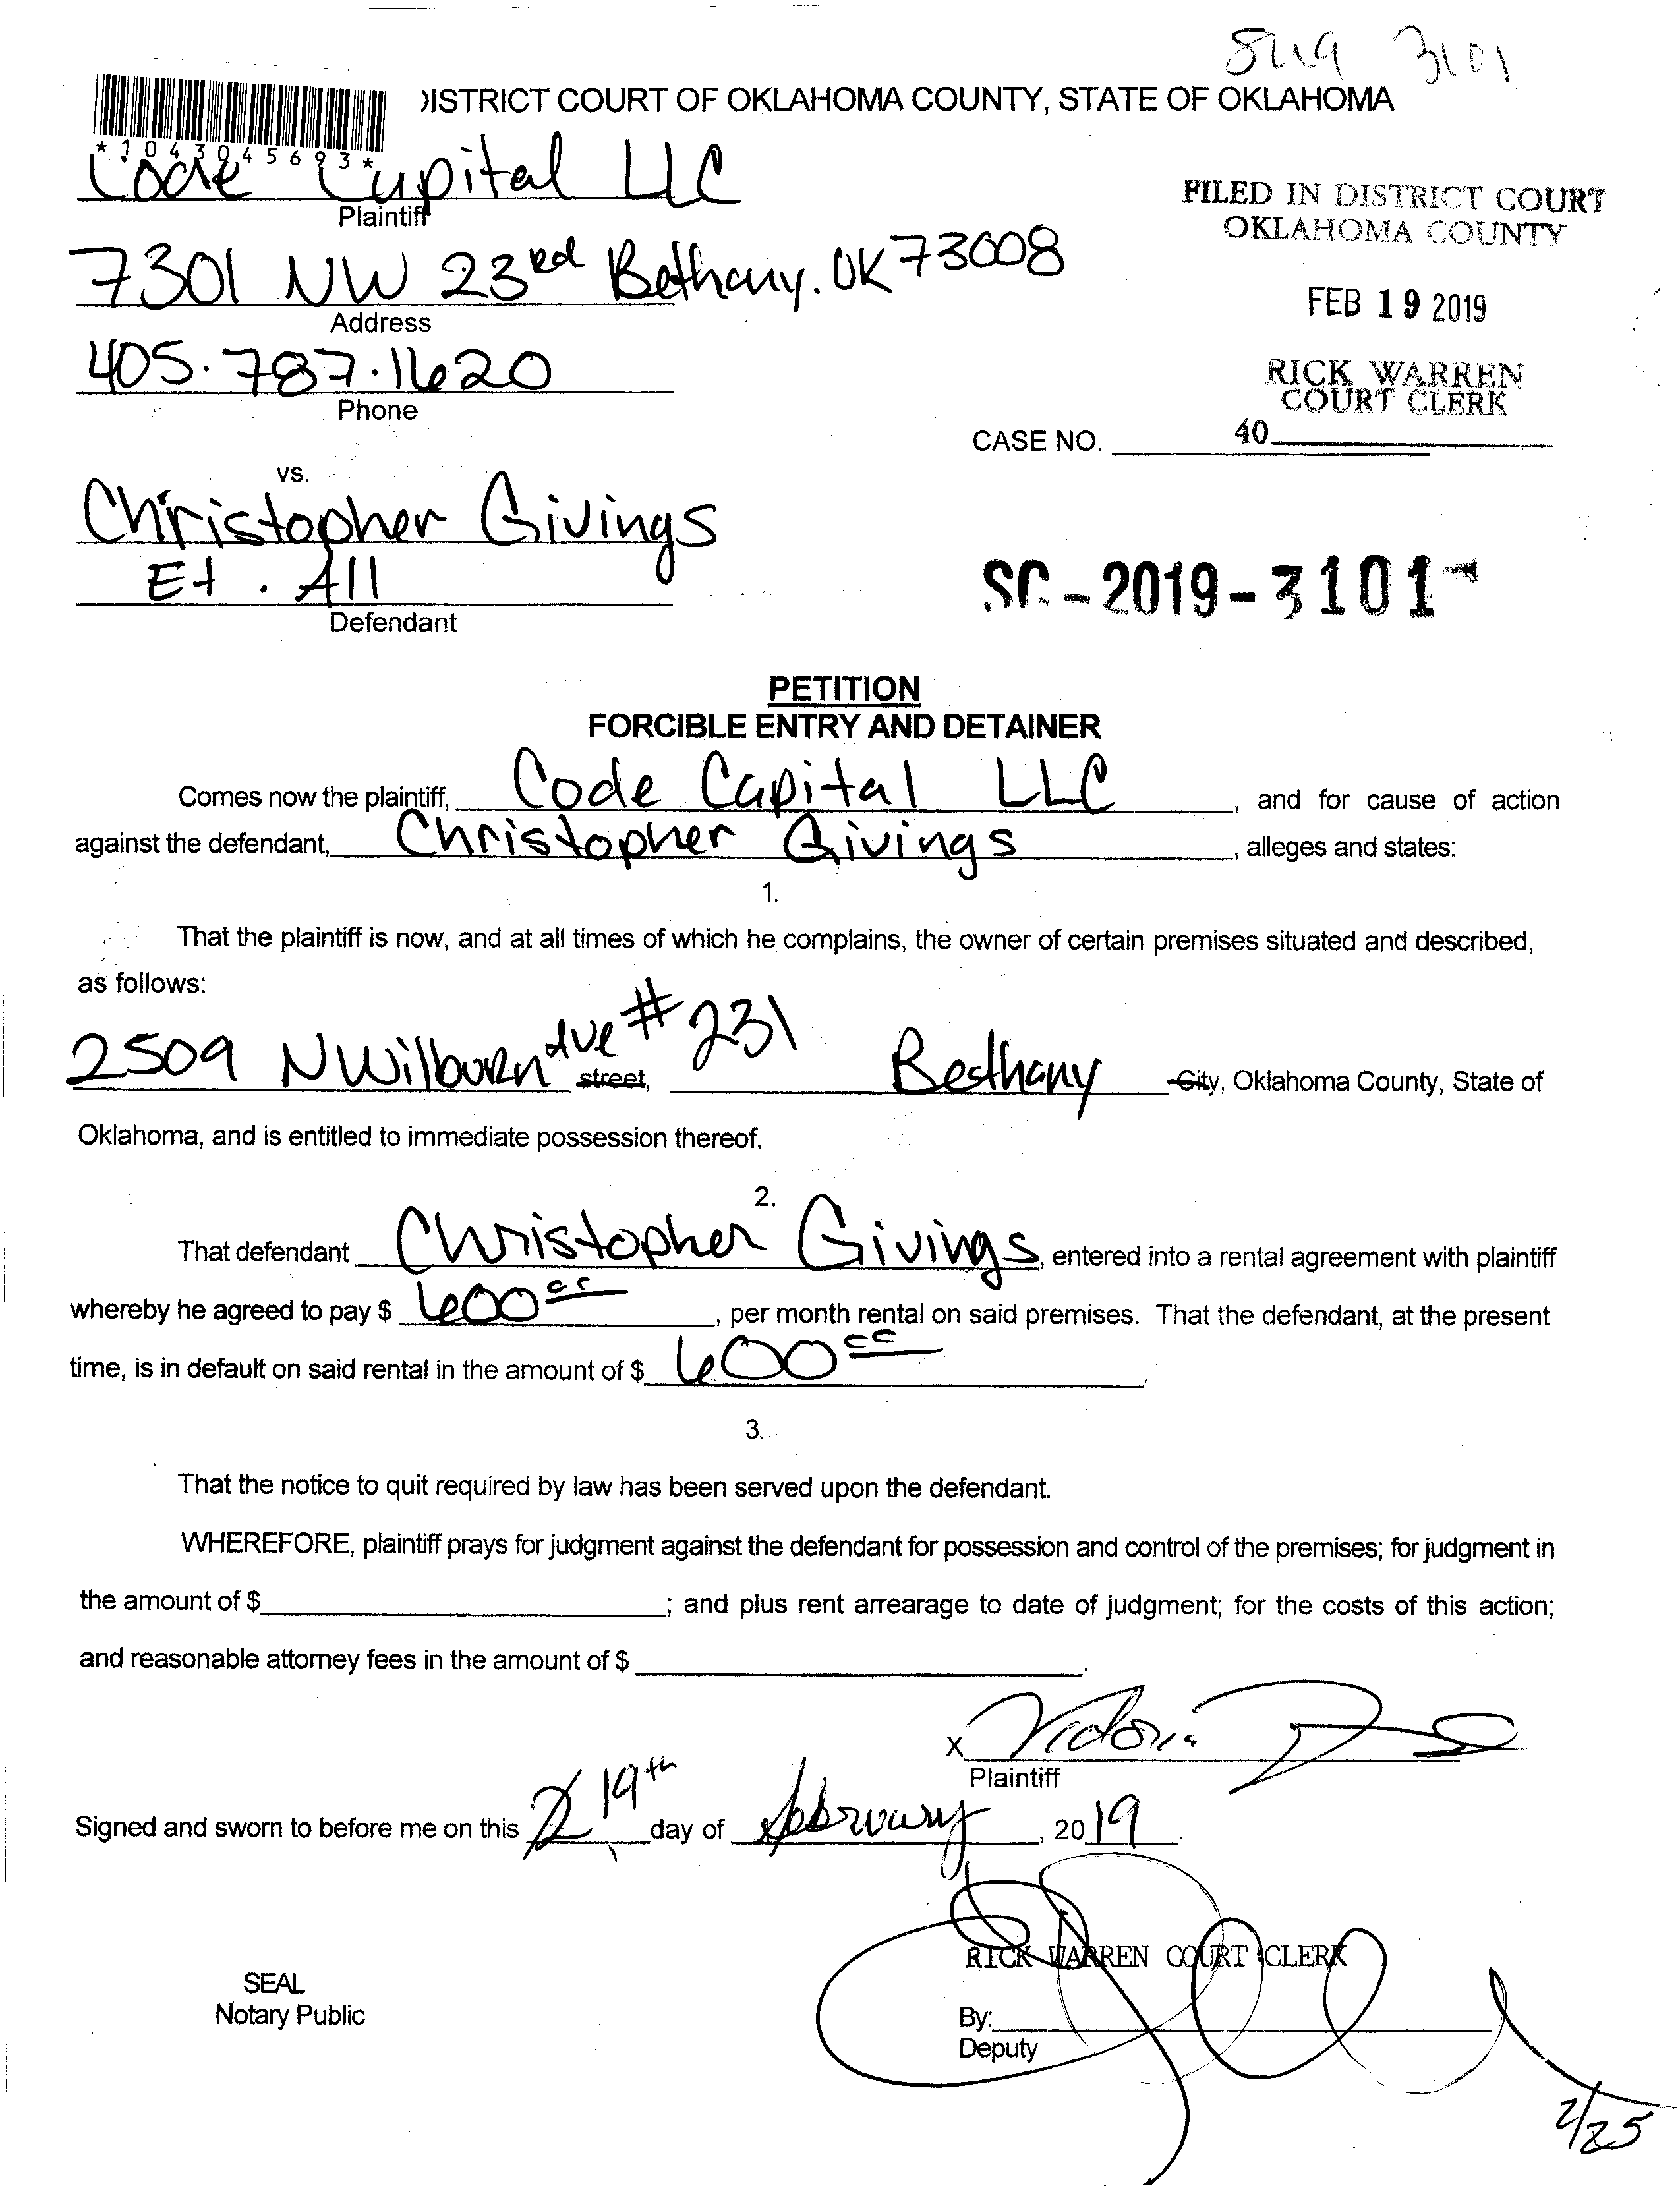 3101
DISTRICT COURT OF OKLAHOMA COUNTY, STATE OF OKLAHOMA
*1043045693*
Code Capital LLC
Plaintiff
FILED IN DISTRICT COURT
OKLAHOMA COUNTY
7301 NW 23rd Bethany. OK 73008
Address
FEB 19 2019
405.787.1620
Phone
RICK WARREN
COURT CLERK
CASE NO. 40
vs.
Christopher Givings
Et. All
Defendant
SC-2019-3101
PETITION
FORCIBLE ENTRY AND DETAINER
Comes now the plaintiff, Code Capital LLC, and for cause of action
against the defendant, Christopher Givings, alleges and states:
1.
That the plaintiff is now, and at all times of which he complains, the owner of certain premises situated and described,
as follows:
2509 N Wilburn Ave #231 street, Bethany City, Oklahoma County, State of
Oklahoma, and is entitled to immediate possession thereof.
2.
That defendant Christopher Givings, entered into a rental agreement with plaintiff
whereby he agreed to pay $ 600, per month rental on said premises. That the defendant, at the present
time, is in default on said rental in the amount of $ 600.
3.
That the notice to quit required by law has been served upon the defendant.
WHEREFORE, plaintiff prays for judgment against the defendant for possession and control of the premises; for judgment in
the amount of $; and plus rent arrearage to date of judgment; for the costs of this action;
and reasonable attorney fees in the amount of $.
X Victoria
Plaintiff
Signed and sworn to before me on this 19th day of February, 2019.
RICK WARREN COURT CLERK
SEAL
Notary Public
By:
Deputy
2/25